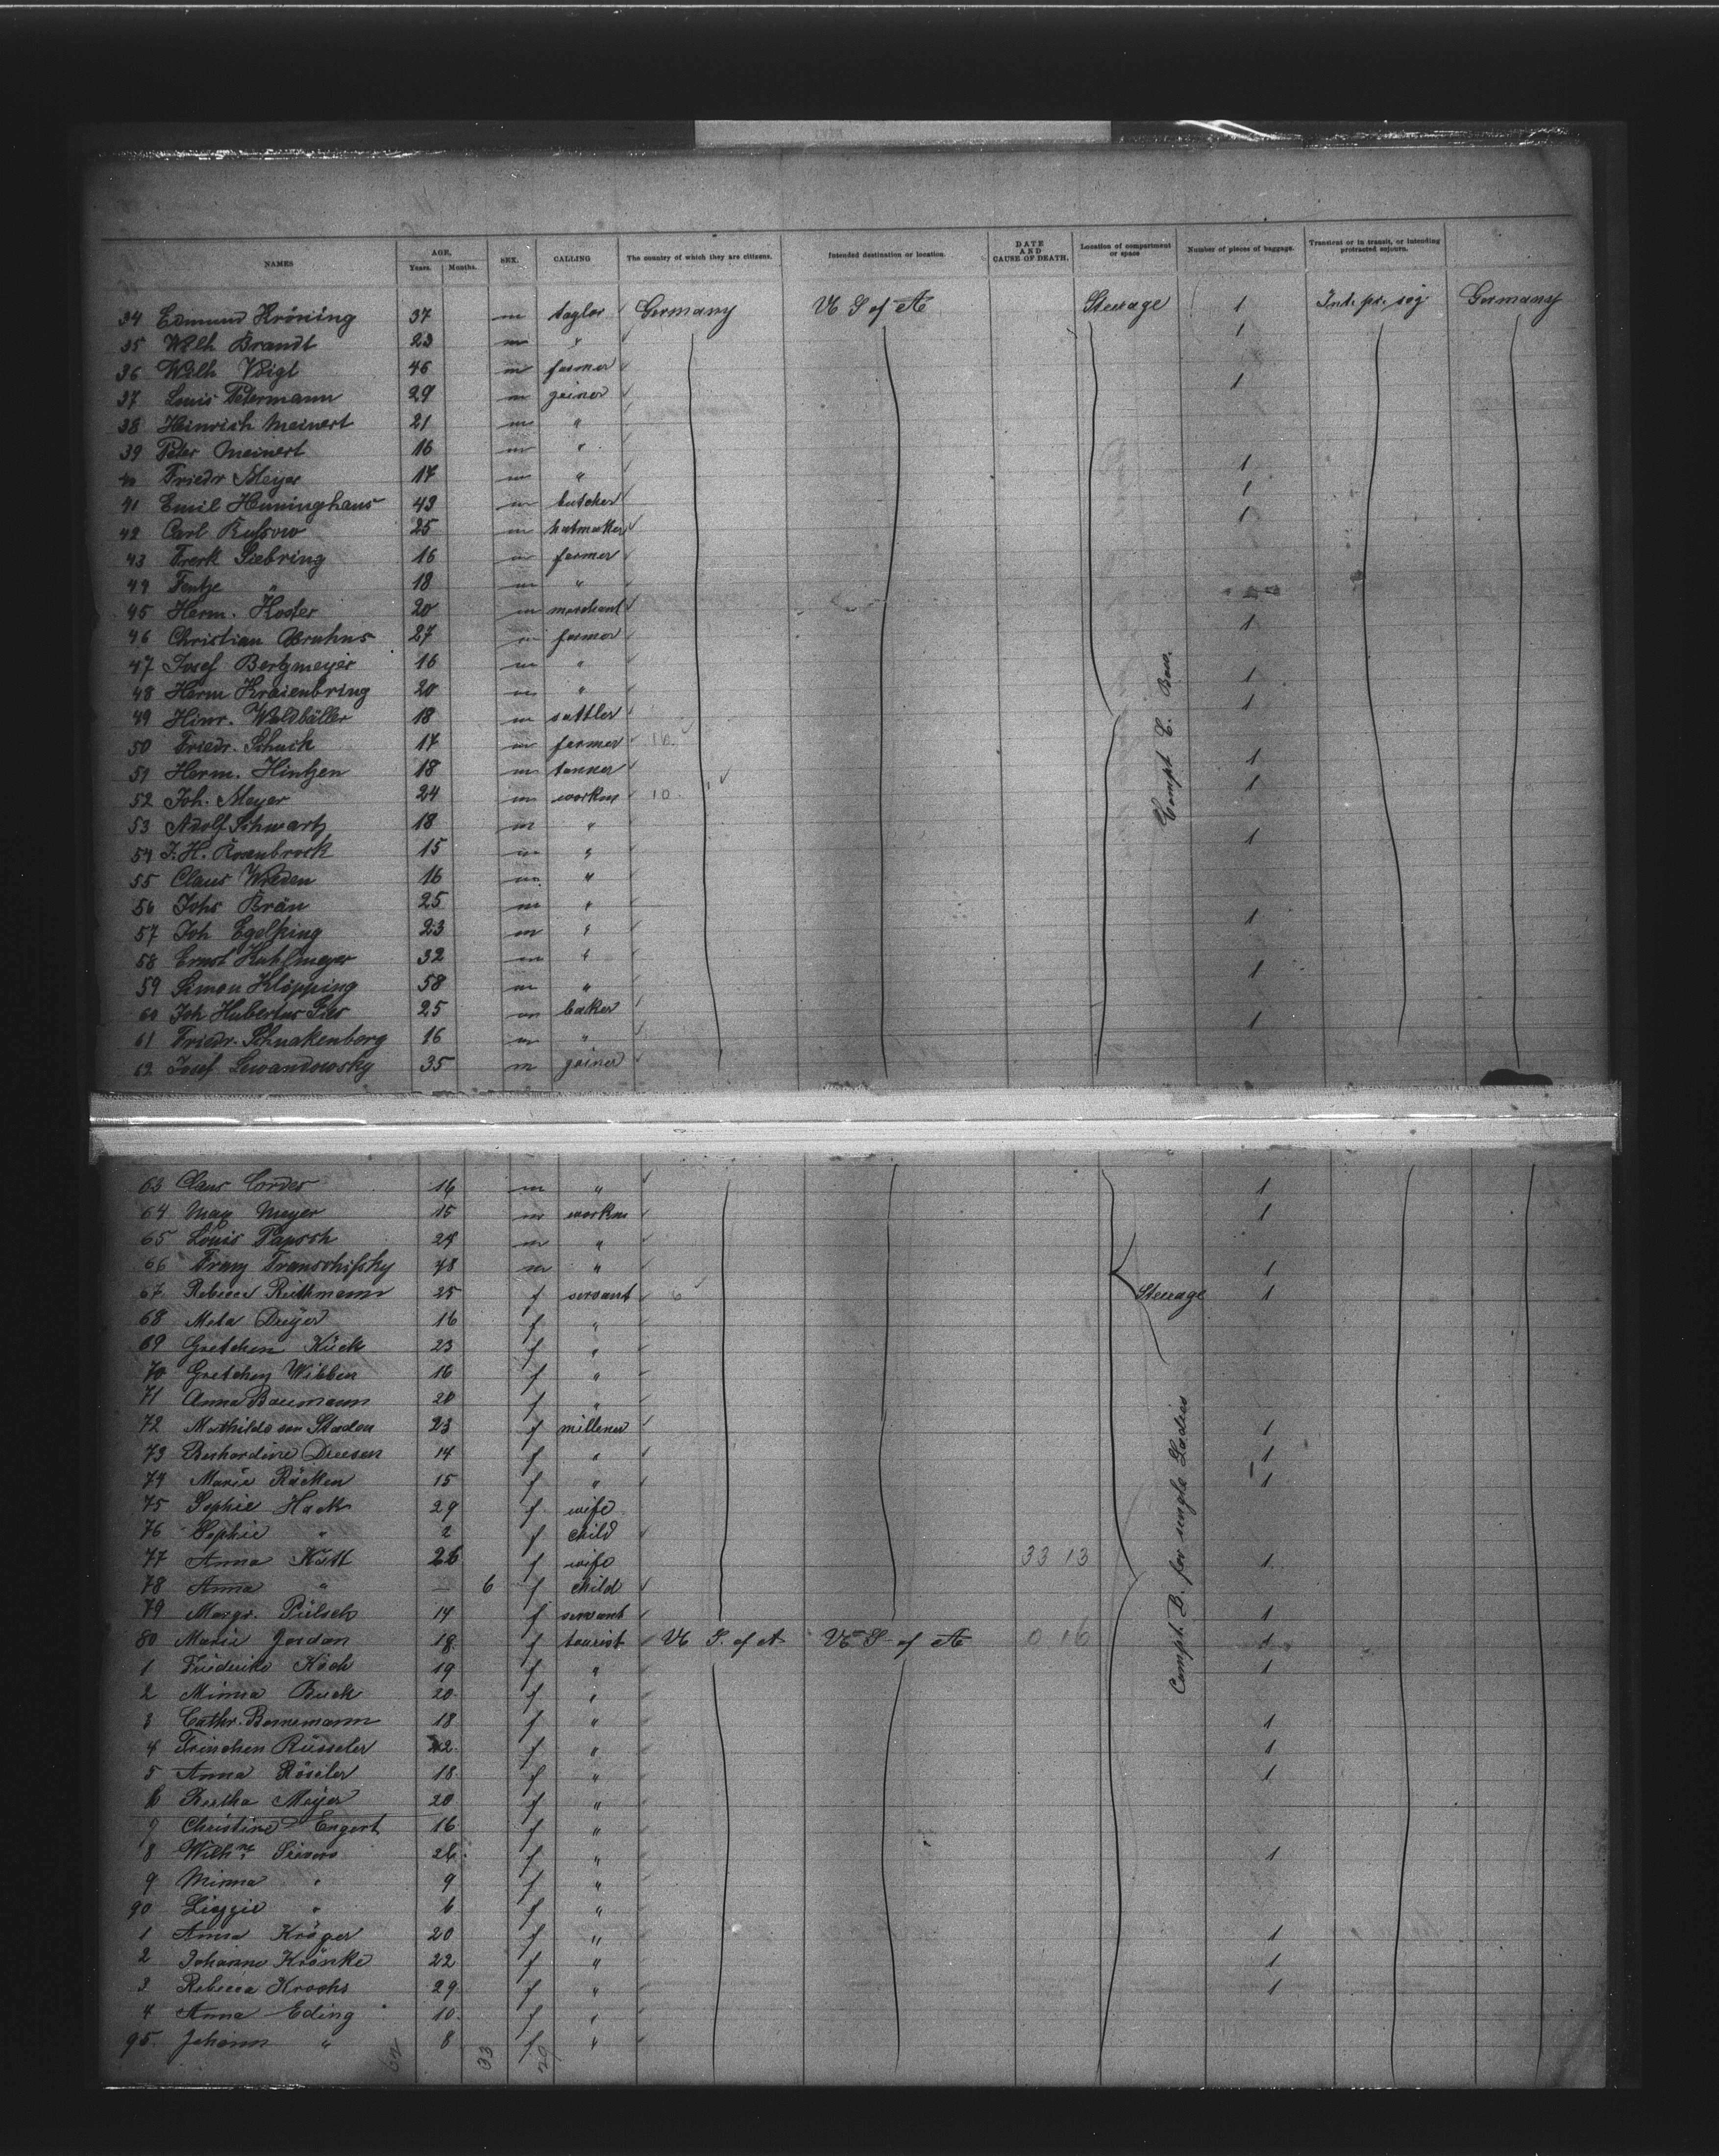 NAMES AGE, Years. Months. SEX. CALLING The country of which they are citizens. Intended destination or location. DATE AND CAUSE OF DEATH. Location of compartment or space Number of pieces of baggage. Transient or in transit, or intending protracted sojourn.
34 Edmund Kröning 37 m taylor Germany U S of A Steerage 1 Int. pr. soj Germany
35 Wilh Brandt 23 m " 1
36 Wilh Voigt 46 m farmer
37 Louis Petermann 29 m joiner 1
38 Heinrich Meinert 21 m "
39 Peter Meinert 16 m "
40 Friedr Meyer 17 m " 1
41 Emil Henninghaus 43 m butcher 1
42 Carl Russow 25 m hatmaker 1
43 Frerk Siebring 16 m farmer
44 Fentje " 18 m "
45 Herm. Koster 20 m merchant
46 Christian Bruhns 27 m farmer 1
47 Josef Bergmeyer 16 m "
48 Herm Kraienbring 20 m " 1
49 Hinr. Waldbüller 18 m sattler 1
50 Friedr. Schuck 17 m farmer 10
51 Herm. Hintzen 18 m tanner 1
52 Joh. Meyer 24 m workm 10 1
53 Adolf Schwartz 18 m "
54 J. H. Rosenbrock 15 m " 1
55 Claus Wreden 16 m "
56 Johs Brün 25 m "
57 Joh Egelking 23 m " 1
58 Ernst Kuhlmeyer 32 m "
59 Simon Klöpping 58 m " 1
60 Joh Hubertus Lies 25 m baker
61 Friedr. Schnakenberg 16 m " 1
62 Josef Lewandowsky 35 m joiner
Compt C. Bow.
63 Claus Cordes 16 m " 1
64 Max Meyer 15 m workm 1
65 Louis Papsch 24 m "
66 Franz 48 m " 1
67 Rebecca Reithmann 25 f servant 6 Steerage 1
68 Meta Dreyer 16 f "
69 Gretchen Kück 23 f "
70 Gretchen Wibben 16 f "
71 Anna Baumann 20 f "
72 Mathilde von Staden 23 f millener 1
73 Berhardine Dreesen 14 f " 1
74 Marie Räcken 15 f " 1
75 Sophie Hack 29 f wife
76 Sophie " 2 f child
77 Anna Kött 26 f wife 33 13 1
78 Anna " — 6 f child
79 Margr. Pülsch 14 f servant 1
80 Marie Jordan 18 f tourist U S. of A U S of A 0 16 1
1 Friederike Koch 19 f " 1
2 Minna Buck 20 f "
3 Cathr. Bornemann 18 f " 1
4 Trinchen Rüsseler 22 f " 1
5 Anna Röseler 18 f " 1
6 Bertha Meyer 20 f "
7 Christine Engert 16 f "
8 Wilhne Sievers 26 f " 1
9 Minna " 9 f "
90 Lizzie " 6 f "
1 Anna Kröger 20 f " 1
2 Johanne Krönke 22 f " 1
3 Rebecca Kroohs 29 f " 1
4 Anna Eding 10 f "
95 Johann " 8 f "
Compt. D. for single Ladies
62 33 29